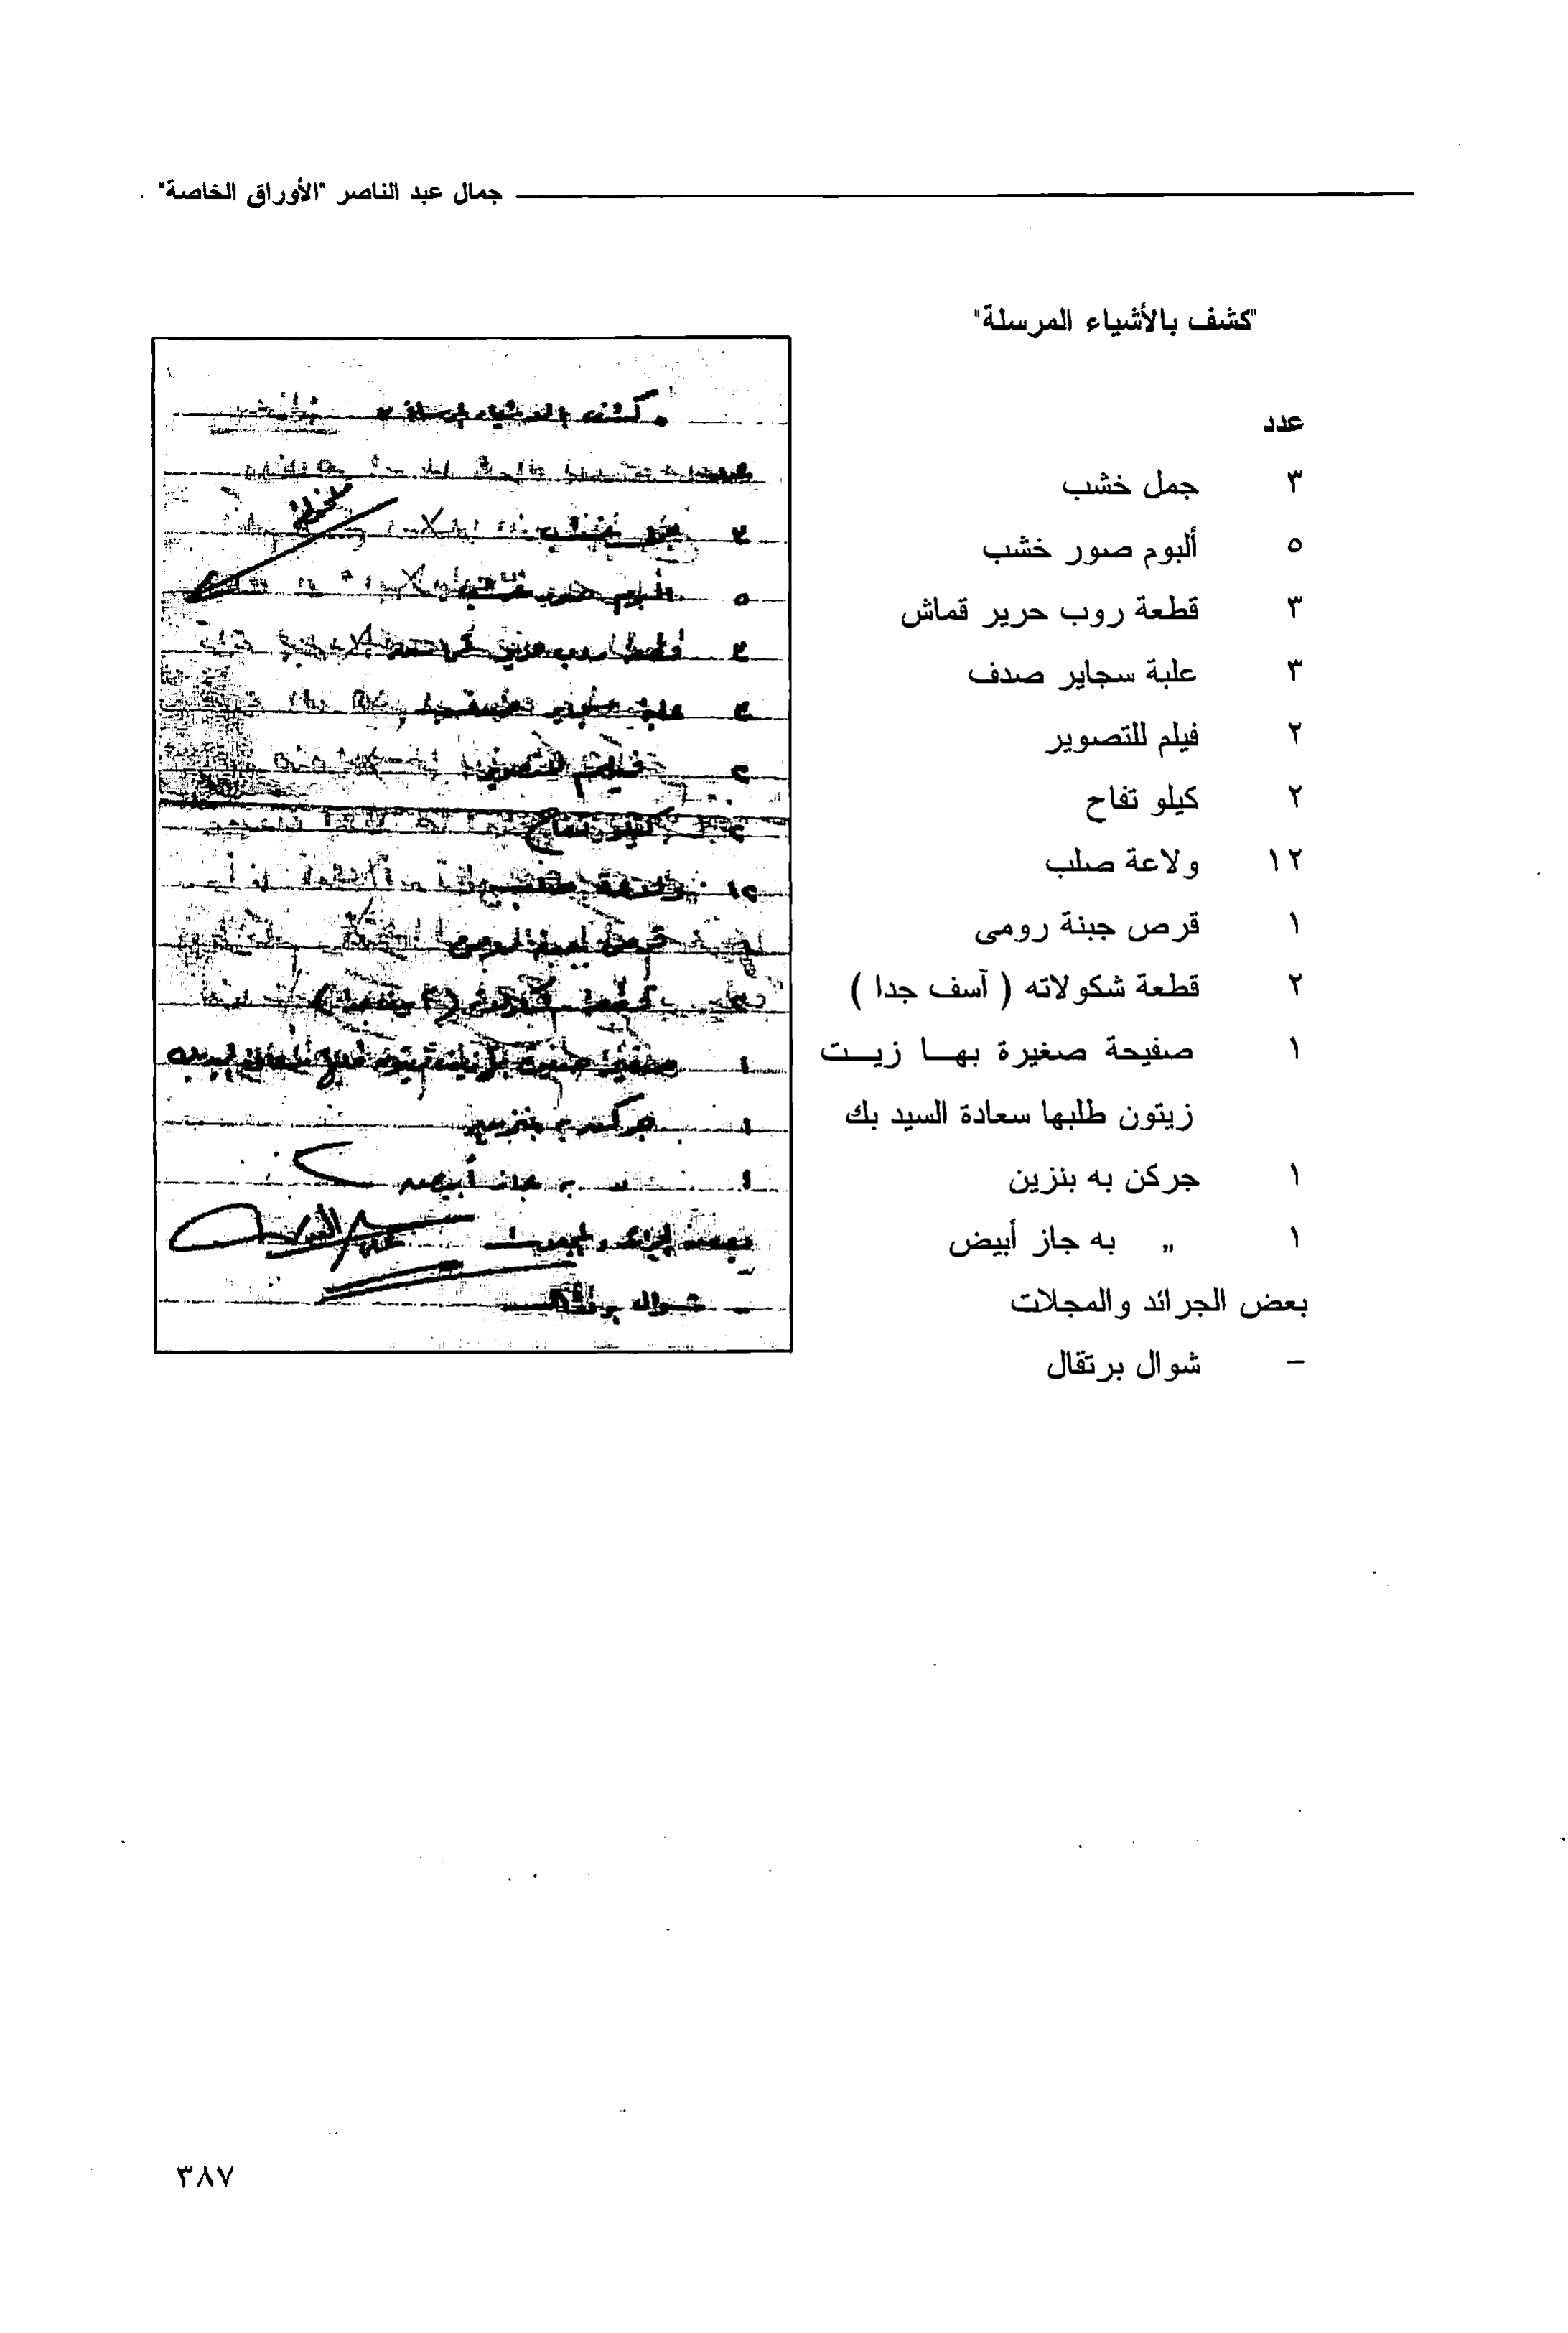 جمال عبد الناصر "الأوراق الخاصة"
"كشف بالأشياء المرسلة"
عدد
٣ جمل خشب
٥ ألبوم صور خشب
٣ قطعة روب حرير قماش
٣ علبة سجاير صدف
٢ فيلم للتصوير
٢ كيلو تفاح
١٢ ولاعة صلب
١ قرص جبنة رومى
٢ قطعة شكولاته ( آسف جدا )
١ صفيحة صغيرة بهـا زيـت
زيتون طلبها سعادة السيد بك
١ جركن به بنزين
١ " به جاز أبيض
بعض الجرائد والمجلات
- شوال برتقال
كشف
٥
فيلم للتصوير
كيلو تفاح
١٢
جركن به بنزين
بعض الجرائد
- شوال برتقال
٣٨٧